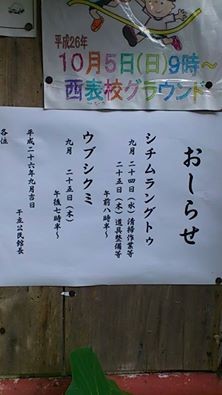 平成26年
10月5日(日)9時〜
西表校グラウンド
おしらせ
シチムラングトゥ
九月 二十四日(水)清掃作業等
二十五日(木)道具整備等
午前八時半〜
ウブシクミ
九月 二十五日(木)
午後七時半〜
平成二十六年九月吉日
干立公民館長
各位